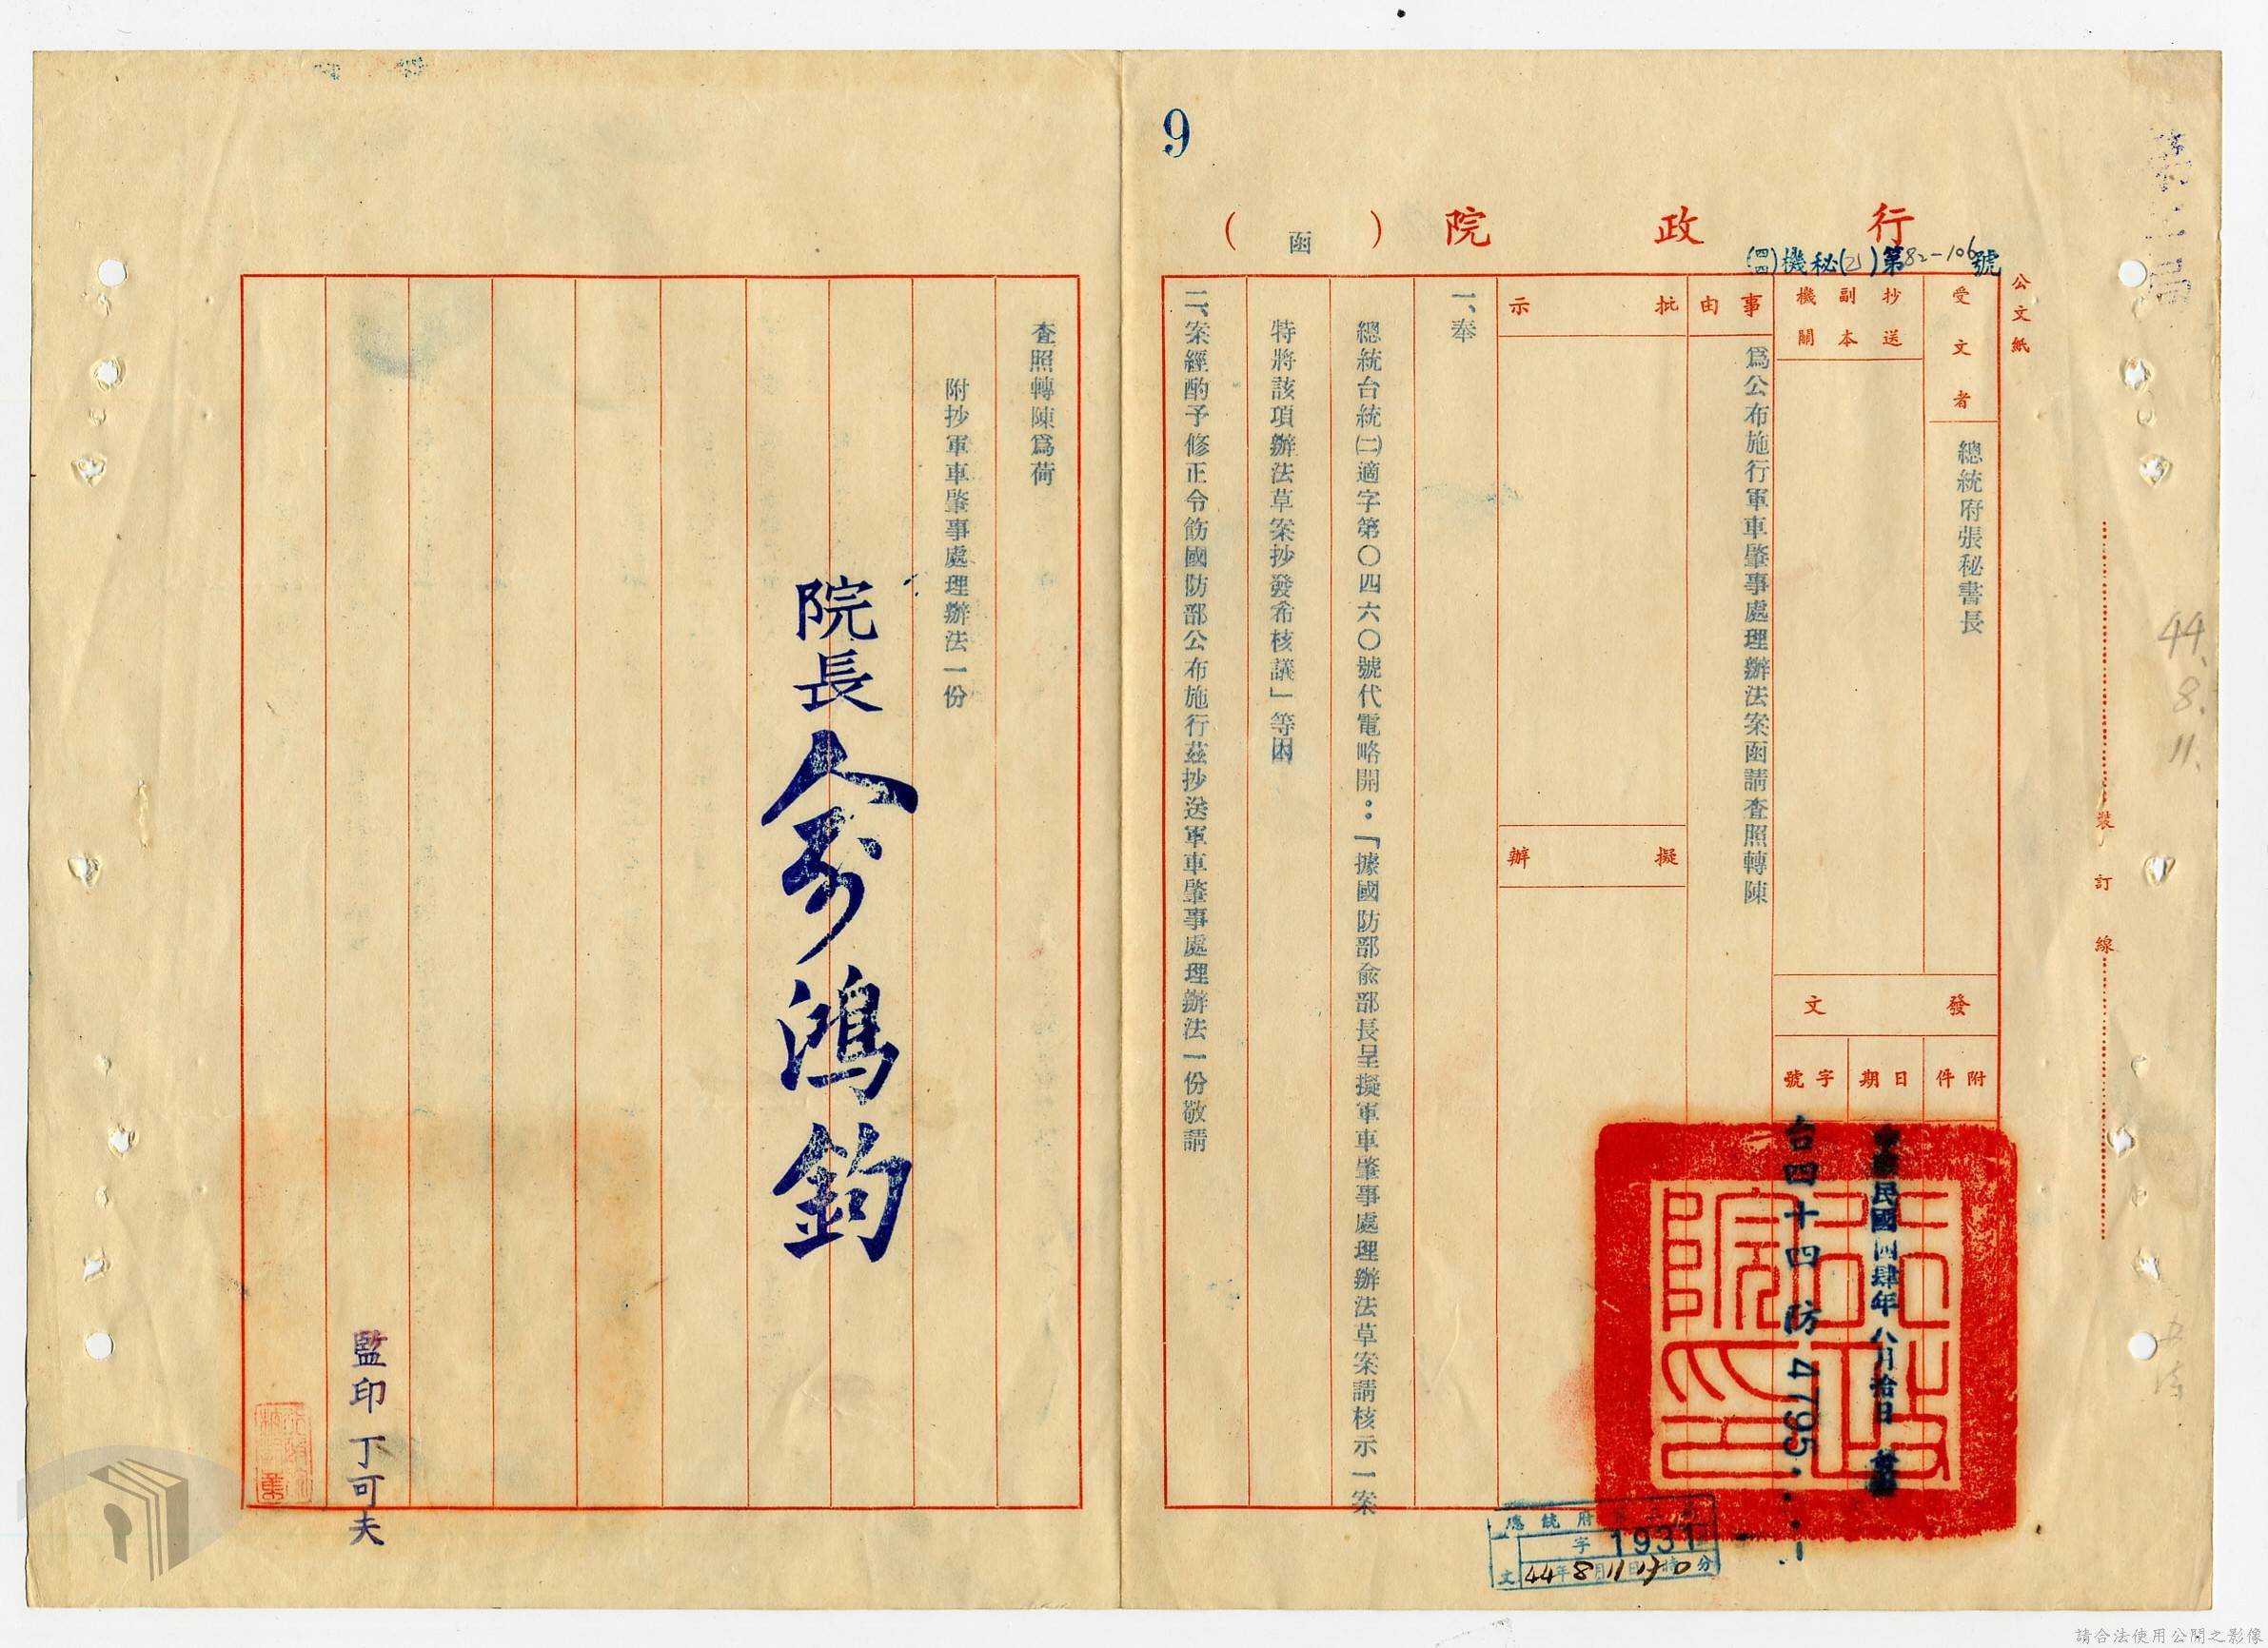 9
行政院（函）
(四四)機秘(乙)第82-106號
公文紙
受文者
總統府張秘書長
抄送副本機關
發文
附件
日期
字號
中華民國四肆年八月拾日
台四十四防4795
事由
為公布施行軍車肇事處理辦法案函請查照轉陳
批示
擬辦
一、奉
總統台統㈡適字第〇四六〇號代電略開：「據國防部俞部長呈擬軍車肇事處理辦法草案請核示一案
特將該項辦法草案抄發希核議」等因
二、案經酌予修正令飭國防部公布施行茲抄送軍車肇事處理辦法一份敬請
查照轉陳為荷
附抄軍車肇事處理辦法一份
院長俞鴻鈞
監印 丁可夫
行政院印
總統府第二局
字1931
文44年8月11日
裝訂線
44.8.11.
請合法使用公開之影像